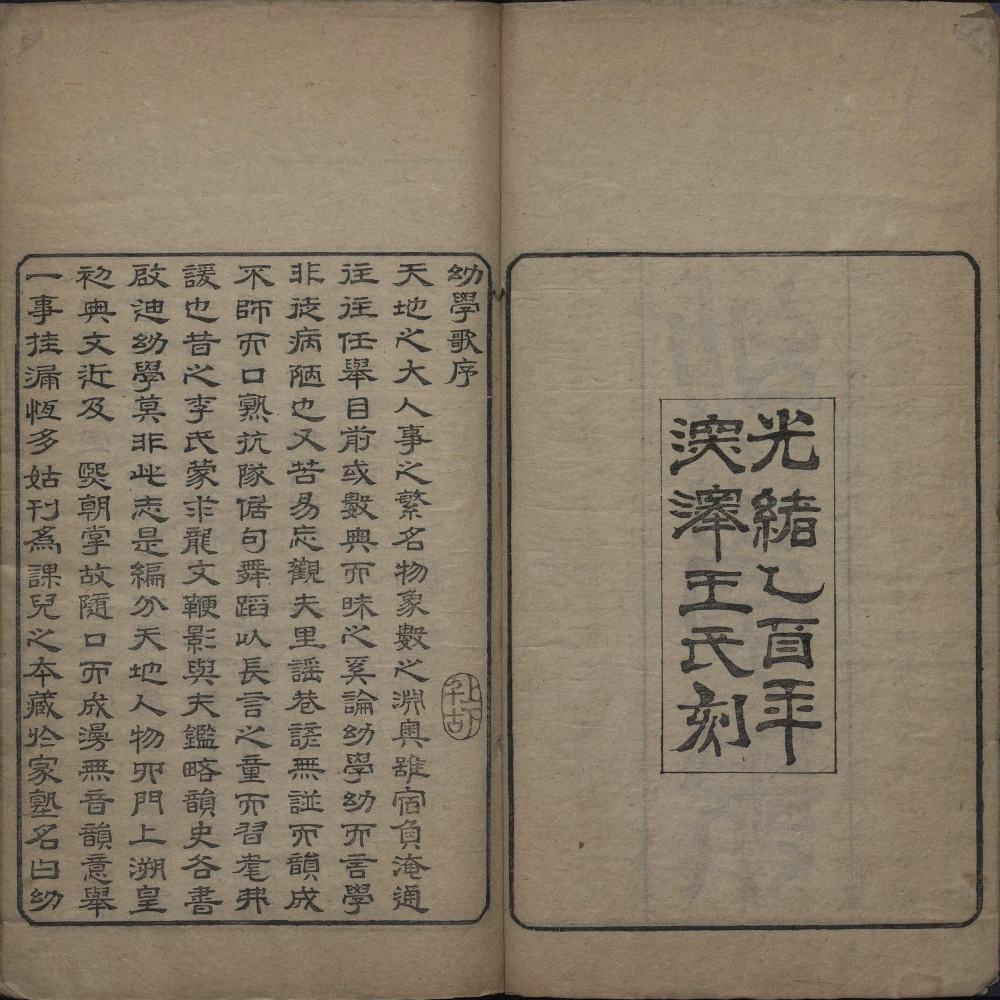 光緒乙酉年
深澤王氏刻
幼學歌序
天地之大人事之繁名物象數之淵奧雖宿負淹通
往往任舉目前或數典而昧之奚論幼學幼而言學
非徒病陋也又苦易忘觀夫里謡巷諺無諩而韻成
不師而口熟抗隊倨句舞蹈以長言之童而習耄弗
諼也昔之李氏蒙求龍文鞭影與夫鑑略韻史各書
啟迪幼學莫非此志是編分天地人物四門上溯皇
初典文近及 熙朝掌故隨口而成漫無音韻意舉
一事挂漏恆多姑刊爲課兒之本藏於家塾名曰幼
上下千古